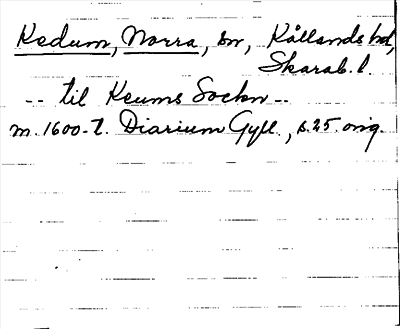 Kedum, Norra, sn, Kållands hd,
Skarab. l.
-- til Keums Sockn --
m. 1600-t. Diarium Gyll., s. 25. orig.